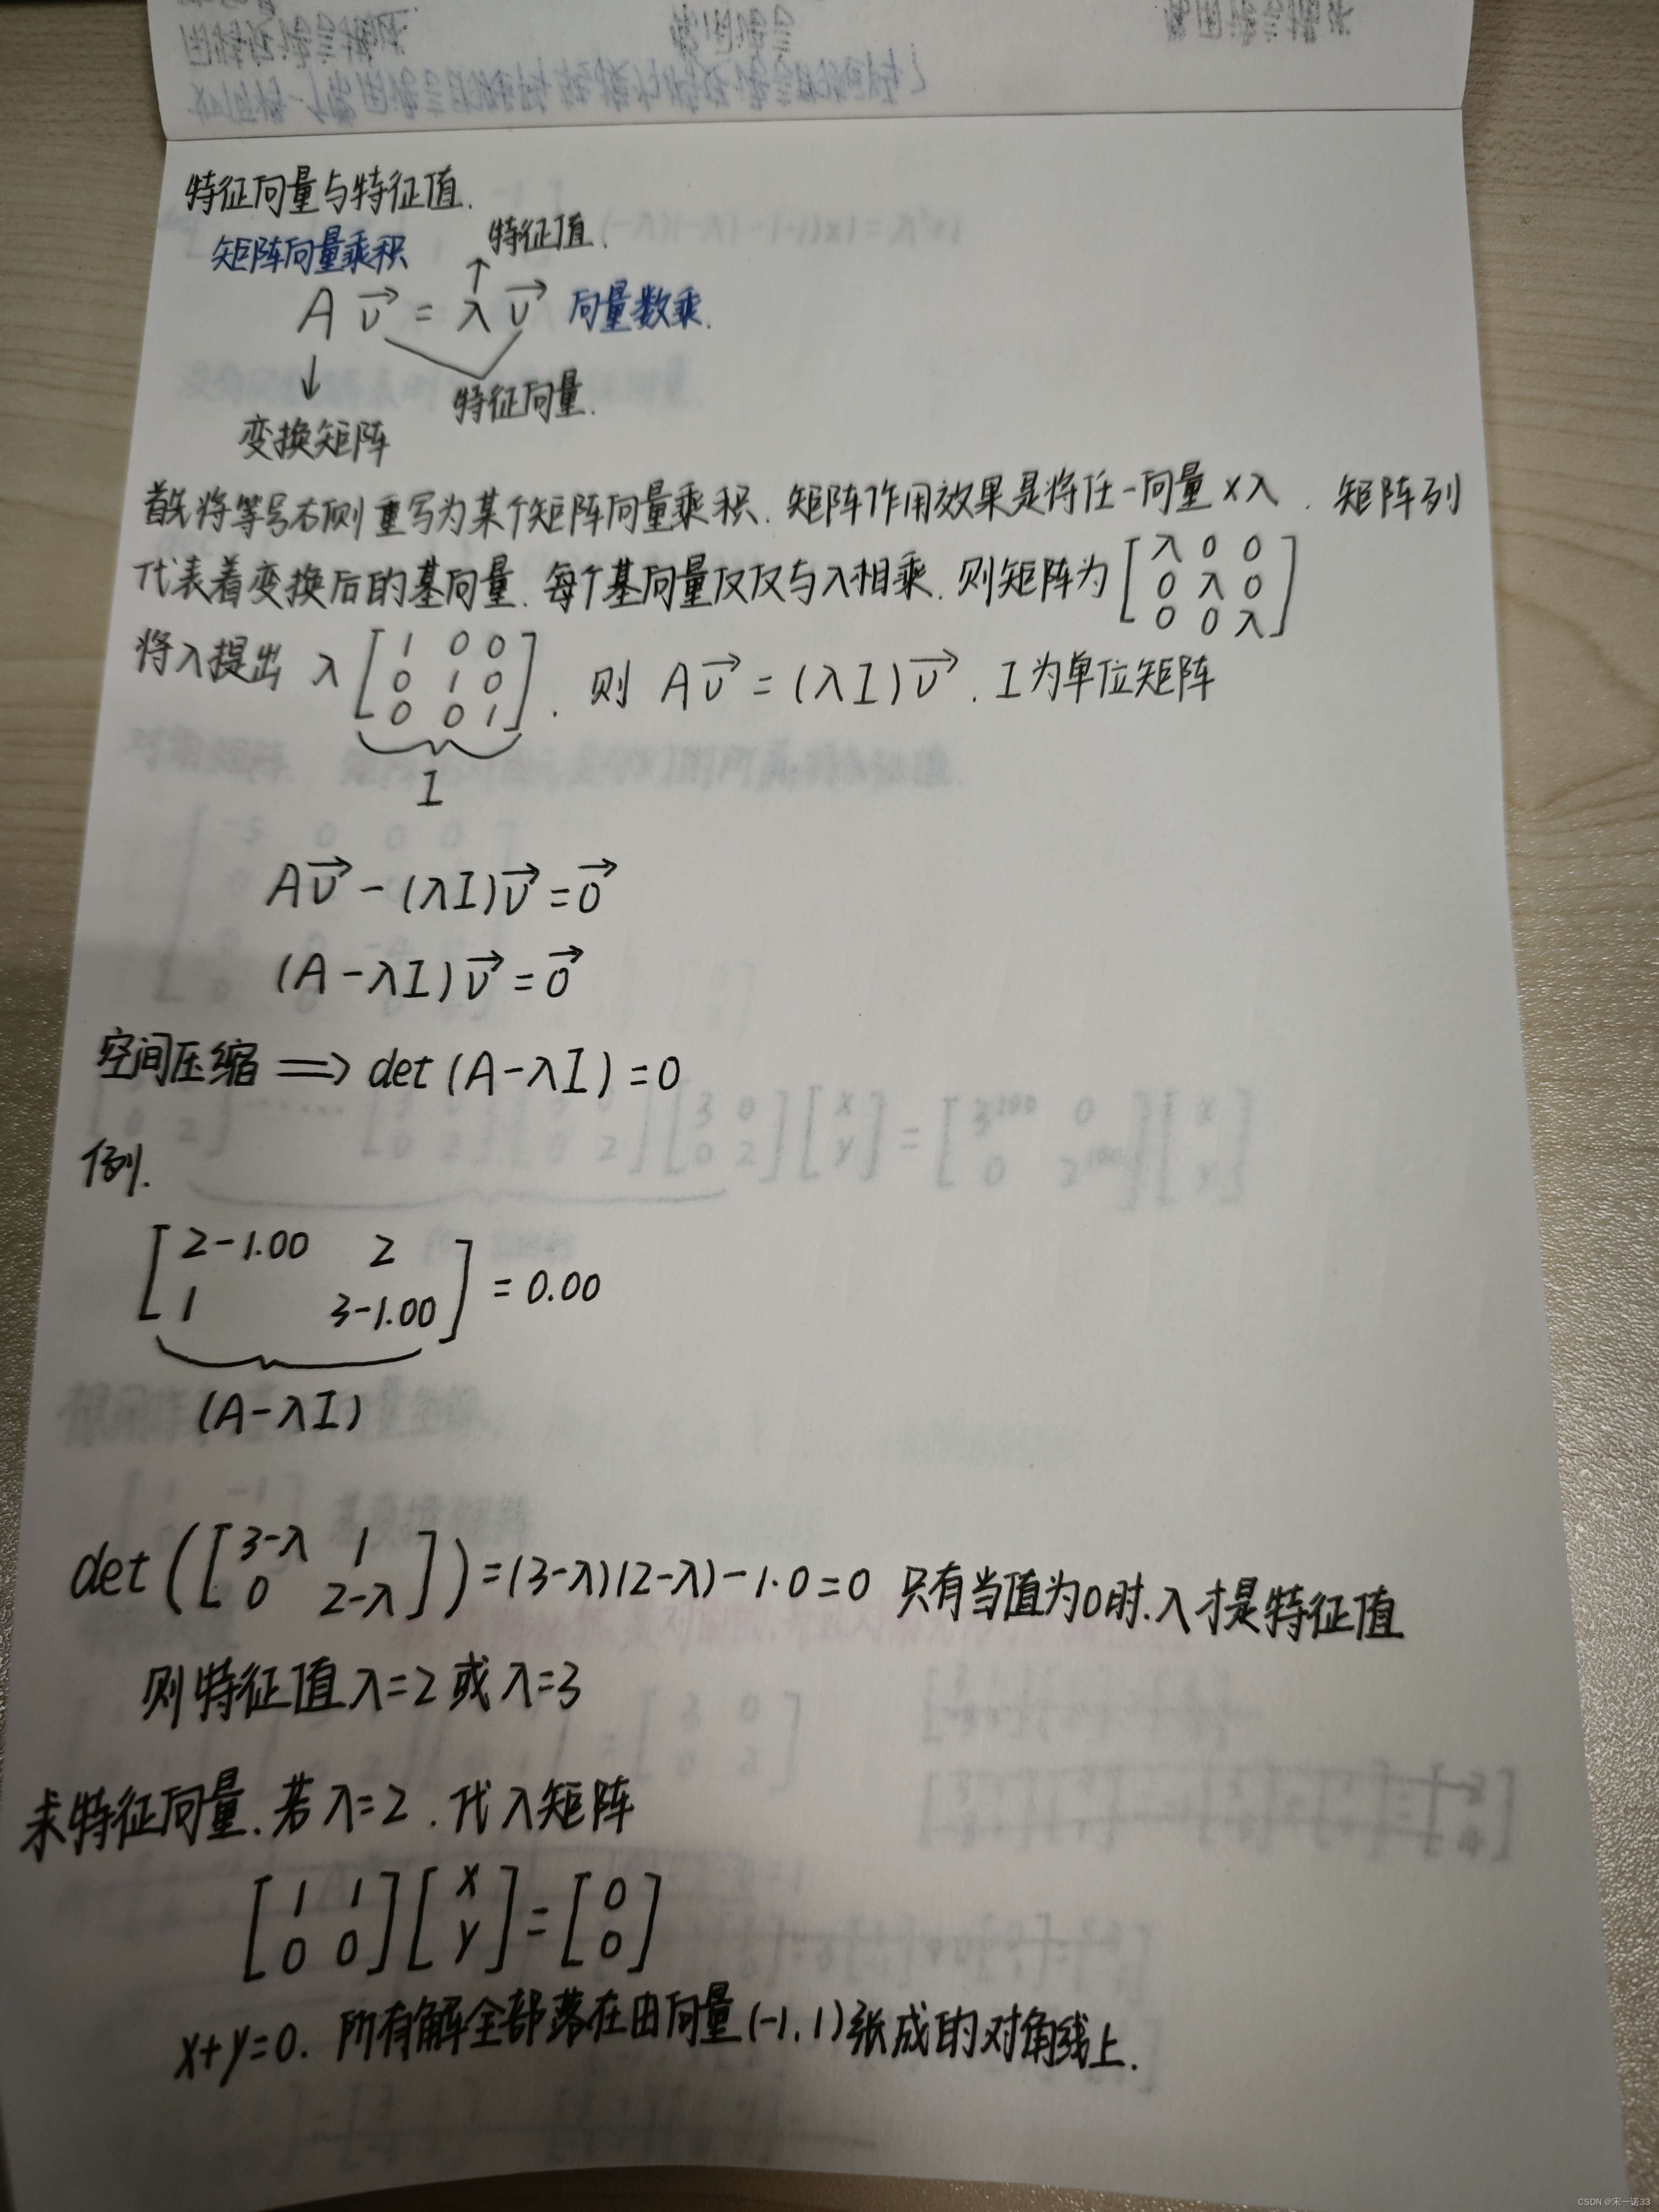 特征向量与特征值.
矩阵向量乘积 特征值.
A v⃗ = λ v⃗ 向量数乘.
特征向量.
变换矩阵
首先将等号右侧重写为某个矩阵向量乘积. 矩阵作用效果是将任一向量×λ. 矩阵列
代表着变换后的基向量. 每个基向量仅仅与λ相乘. 则矩阵为 [λ 0 0
0 λ 0
0 0 λ]
将λ提出 λ [1 0 0
0 1 0
0 0 1]. 则 Av⃗ = (λI)v⃗. I为单位矩阵
I
Av⃗ - (λI)v⃗ = 0⃗
(A - λI)v⃗ = 0⃗
空间压缩 ⟹ det(A-λI) = 0
例.
[2-1.00 2
1 3-1.00] = 0.00
(A-λI)
det([3-λ 1
0 2-λ]) = (3-λ)(2-λ) - 1·0 = 0 只有当值为0时.λ才是特征值
则特征值λ=2或λ=3
求特征向量.若λ=2.代入矩阵
[1 1
0 0] [x
y] = [0
0]
x+y=0. 所有解全部落在由向量(-1,1)张成的对角线上.
CSDN @宋一诺33